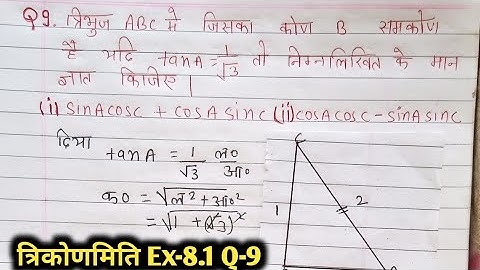 Q9. त्रिभुज ABC मे जिसका कोण B समकोण
है यदि tanA = 1/√3 तो निम्नलिखित के मान
ज्ञात किजिए।
(i) sinA cosC + cosA sinC (ii) cosA cosC - sinA sinC
दिया tanA = 1/√3 ल०/आ०
क० = √ल² + आ०²
= √1 + (√3)²
C
1
2
त्रिकोणमिति Ex-8.1 Q-9